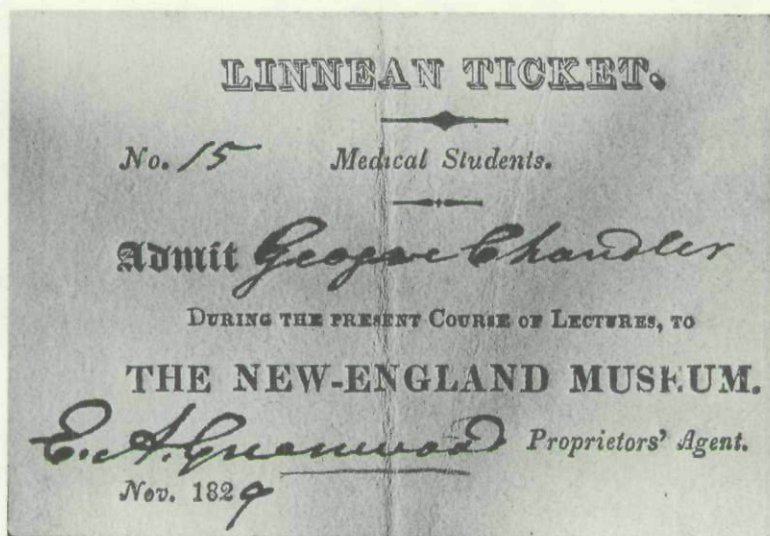 LINNEAN TICKET.
No. 15 Medical Students.
Admit George Chandler
DURING THE PRESENT COURSE OF LECTURES, TO
THE NEW-ENGLAND MUSEUM.
E. A. Greenwood Proprietors' Agent.
Nov. 1829